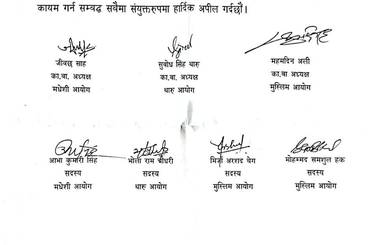 कायम गर्न सम्बद्ध सबैमा संयुक्तरुपमा हार्दिक अपील गर्दछौं।
जीवछ साह सुबोध सिंह थारु महमदिन अली
का.वा. अध्यक्ष का.वा. अध्यक्ष का.वा. अध्यक्ष
मधेशी आयोग थारु आयोग मुस्लिम आयोग
आभा कुमारी सिंह भोला राम चौधरी मिर्जा अरशद बेग मोहम्मद समशुल हक
सदस्य सदस्य सदस्य सदस्य
मधेशी आयोग थारु आयोग मुस्लिम आयोग मुस्लिम आयोग